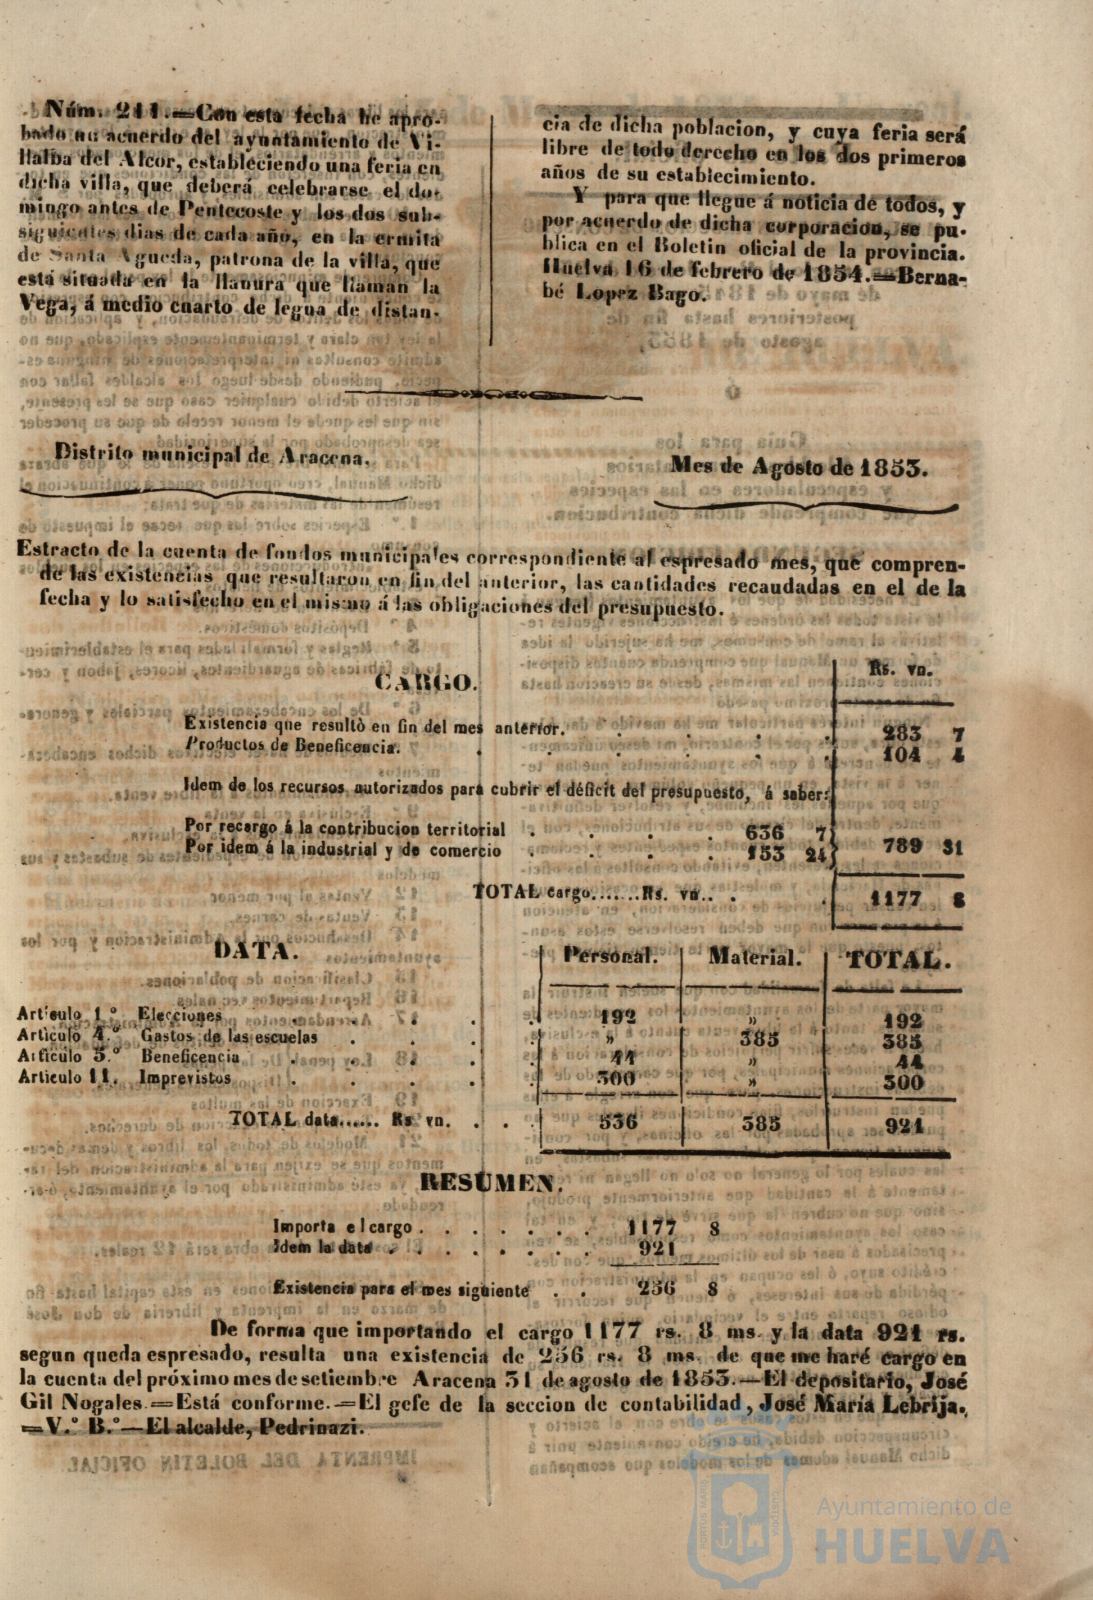 Núm. 211.—Con esta fecha he apro-
bado un acuerdo del ayuntamiento de Vi-
llalba del Alcor, estableciendo una feria en
dicha villa, que deberá celebrarse el do-
mingo antes de Pentecoste y los dos sub-
siguientes dias de cada año, en la ermita
de Santa Agueda, patrona de la villa, que
está situada en la llanura que llaman la
Vega, á medio cuarto de legua de distan-
cia de dicha poblacion, y cuya feria será
libre de todo derecho en los dos primeros
años de su establecimiento.
Y para que llegue á noticia de todos, y
por acuerdo de dicha corporacion, se pu-
blica en el Boletin oficial de la provincia.
Huelva 16 de febrero de 1854.=Berna-
bé Lopez Bago.
Distrito municipal de Aracena.
Mes de Agosto de 1853.
Estracto de la cuenta de fondos municipales correspondiente al espresado mes, que compren-
de las existencias que resultaron en fin del anterior, las cantidades recaudadas en el de la
fecha y lo satisfecho en el mismo á las obligaciones del presupuesto.
CARGO.
Rs. vn.
Existencia que resultò en fin del mes anterior. . . . . 283 7
Productos de Beneficencia. . . . . . 104 4
Idem de los recursos autorizados para cubrir el déficit del presupuesto, á saber:
Por recargo á la contribucion territorial . . . . 636 7
Por idem á la industrial y de comercio . . . . 153 24 } 789 31
TOTAL cargo.......Rs. vn.. . . 1177 8
DATA. Personal. Material. TOTAL.
Artículo 1.º Elecciones . . . . 192 » 192
Artìculo 4.º Gastos de las escuelas . . . . » 385 385
Artículo 5.º Beneficencia . . . . 44 » 44
Artìculo 11. Imprevistos . . . . 300 » 300
TOTAL data...... Rs vn. . . . 536 385 921
RESUMEN.
Importa el cargo . . . . . . . 1177 8
Idem la data . . . . . . . . 921
Existencia para el mes siguiente . . 256 8
De forma que importando el cargo 1177 rs. 8 ms. y la data 921 rs.
segun queda espresado, resulta una existencia de 256 rs. 8 ms. de que me haré cargo en
la cuenta del próximo mes de setiembre Aracena 31 de agosto de 1853.—El depositario, José
Gil Nogales.=Está conforme.=El gefe de la seccion de contabilidad, José María Lebrija.
=V.º B.º—El alcalde, Pedrinazi.
PORTUS MARIS
CUSTODIA
Ayuntamiento de
HUELVA